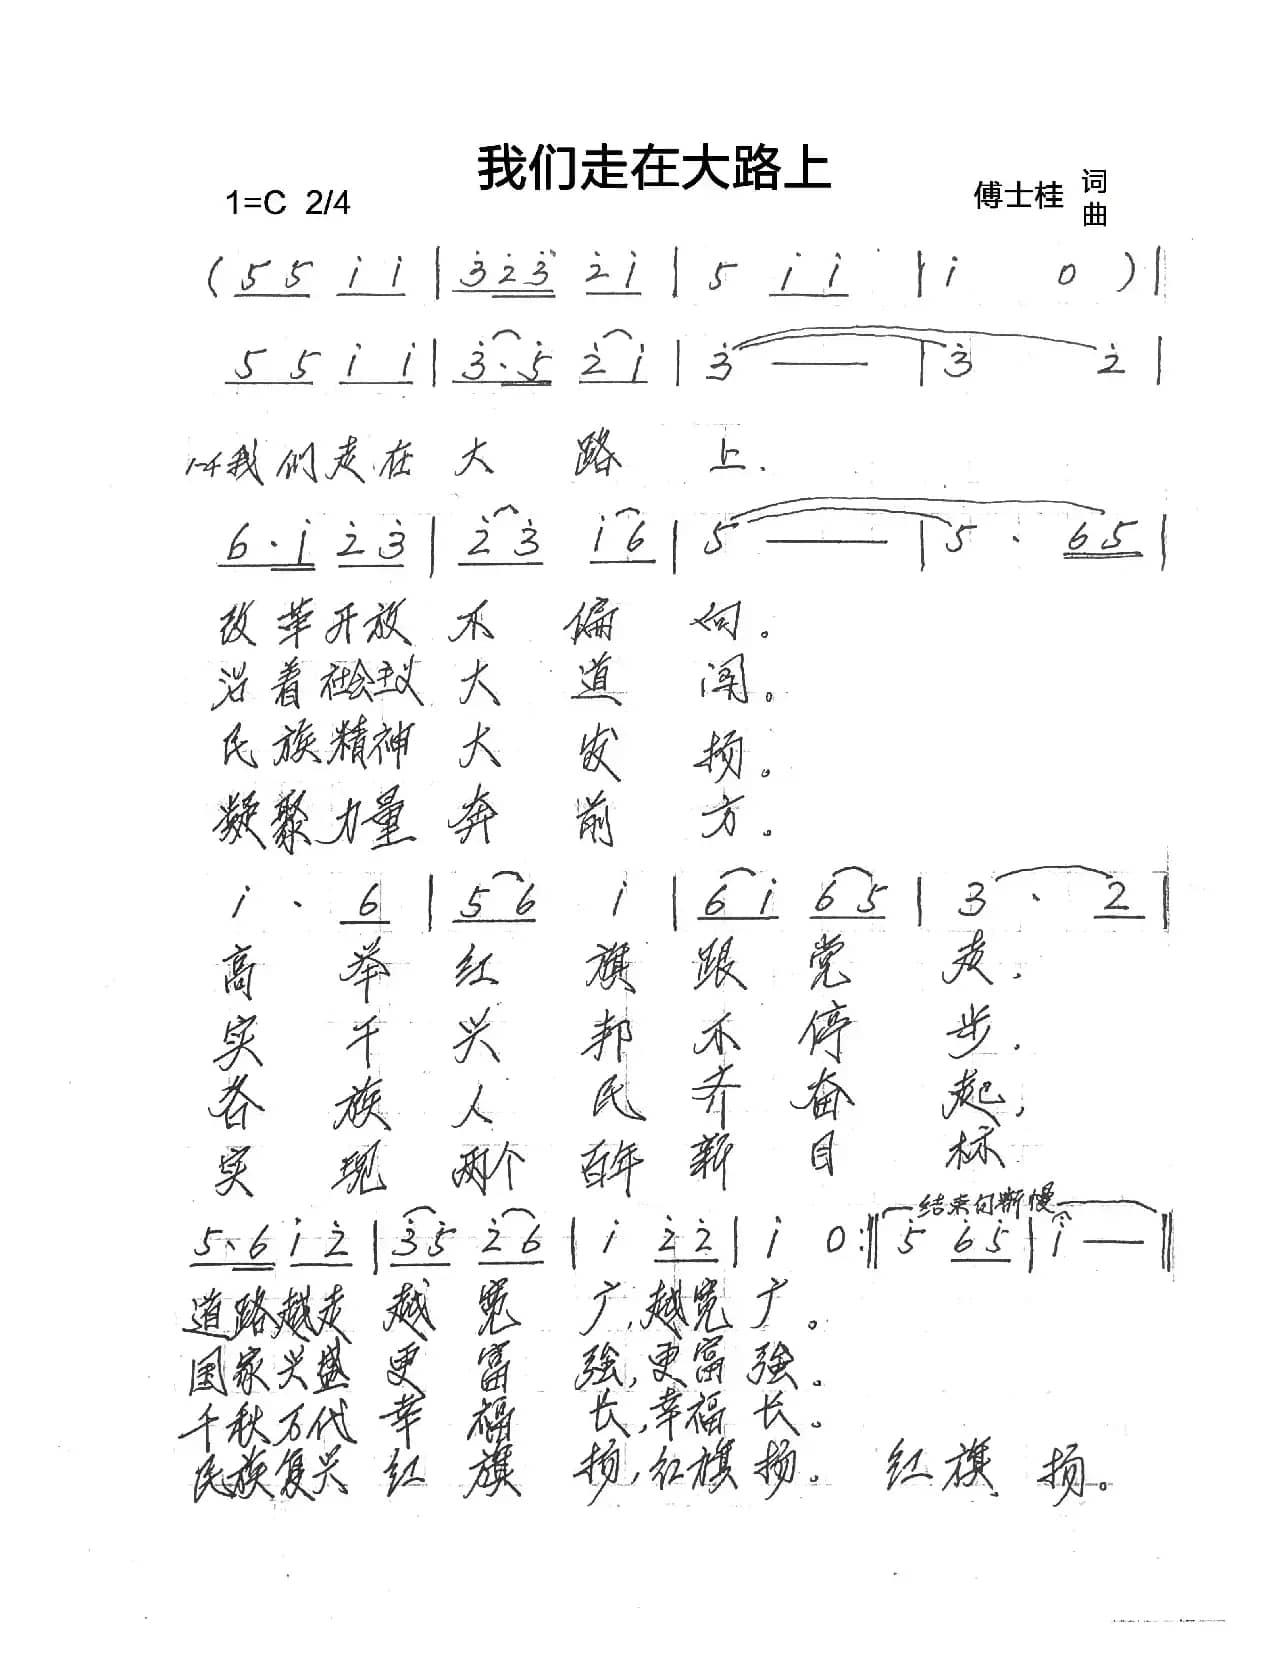 我们走在大路上
1=C 2/4
傅士桂 词曲
(5 5 i i | 3̇ 2̇ 3̇ 2̇ i | 5 i i | i 0 ) |
5 5 i i | 3̇ · 5̇ 2̇ i | 3̇ — | 3̇ 2̇ |
1-4我们走在大路上.
6 · i 2̇ 3̇ | 2̇ 3̇ i 6 | 5 — | 5 · 6 5 |
改革开放不偏向。
沿着社会主义大道闯。
民族精神大发扬。
凝聚力量奔前方。
i · 6 | 5 6 i | 6 i 6 5 | 3 · 2 |
高举红旗跟党走,
实干兴邦不停步.
各族人民齐奋起,
实现两个百年新目标
结束句渐慢
5 · 6 i 2̇ | 3̇ 5 2̇ 6 | i 2̇ 2̇ | i 0 :‖ 5̇ 6̇ 5̇ | i — ‖
道路越走越宽广,越宽广。
国家兴盛更富強,更富強。
千秋万代幸福长,幸福长。
民族复兴红旗扬,红旗扬。 红旗扬。